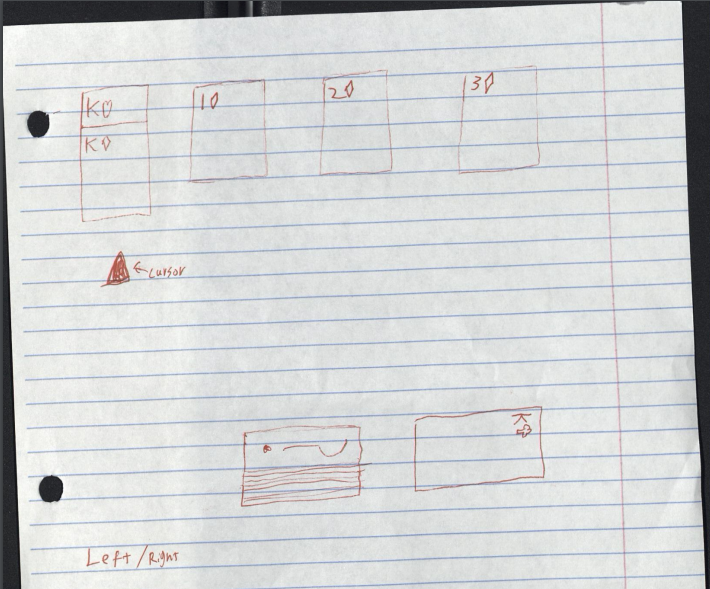 K♡ 1♢ 2♢ 3♢
K♢
← cursor
K♧
Left/Right